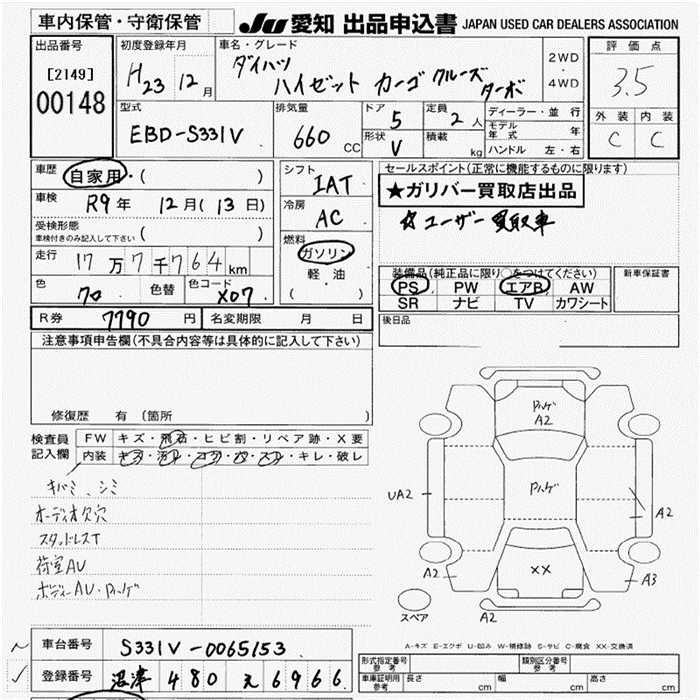 車内保管・守衛保管
JU 愛知 出品申込書 JAPAN USED CAR DEALERS ASSOCIATION
出品番号
[2149]
00148
初度登録年月
H23 12月
車名・グレード
ダイハツ
ハイゼット カーゴ クルーズ
ターボ
2WD
・
4WD
評価点
3.5
外装 内装
C C
型式
EBD-S331V
排気量
660 CC
ドア 5
形状 V
定員 2 人
積載 kg
ディーラー・並行
モデル年式 年
ハンドル 左・右
車歴 自家用・( )
車検 R9年 12月(13日)
受検形態
車検付きのみ記入して下さい ( )
走行 17万7千764km
色 70 色替 色コード X07
シフト
IAT
冷房
AC
燃料
ガソリン
軽油
( )
セールスポイント(正常に機能するものに限ります)
★ガリバー買取店出品
☆ユーザー買取車
装備品(純正品に限り○をつけてください)
PS PW エアB AW
SR ナビ TV カワシート
新車保証書
後日品
R券 7790 円 名変期限 月 日
注意事項申告欄(不具合内容等は具体的に記入して下さい)
修復歴 有 (箇所
検査員
記入欄
FW キズ・飛石・ヒビ割・リペア跡・X要
内装 キズ・汚レ・コゲ・穴・スレ・キレ・破レ
キバミ、シミ
オーディオ欠穴
スタッドレスT
荷室AU
ボディーAU・ハゲ
A2
UA2
A2
XX
A2
A3
A2
スペア
A-キズ E-エクボ U-凹み W-補修跡 S-サビ C-腐食 XX-交換済
車台番号 S331V-0065153
登録番号 沼津 480 え 6966
形式指定番号
参考
類別区分番号
参考
車庫証明用
参考
長さ cm 幅 cm 高さ cm